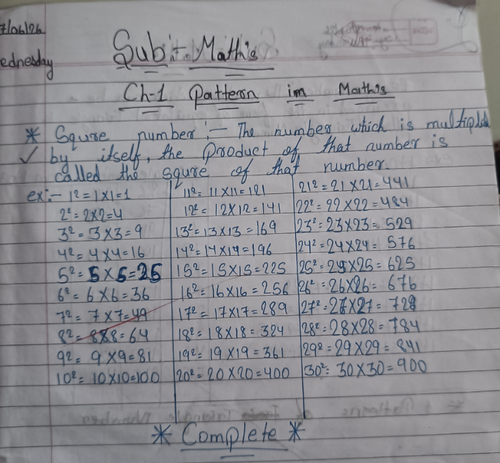 7/06/26
ednesday
Sub:- Math's
Ch-1 Pattern in Math's
* Squre number:- The number which is multiplde
✓ by itself, the product of that number is
called the squre of that number.
ex:- 1² = 1×1=1
2² = 2×2=4
3² = 3×3=9
4² = 4×4=16
5² = 5×5=25
6² = 6×6=36
7² = 7×7=49
8² = 8×8=64
9² = 9×9=81
10² = 10×10=100
11² = 11×11=121
12² = 12×12=141
13² = 13×13=169
14² = 14×14=196
15² = 15×15=225
16² = 16×16=256
17² = 17×17=289
18² = 18×18=324
19² = 19×19=361
20² = 20×20=400
21² = 21×21=441
22² = 22×22=484
23² = 23×23=529
24² = 24×24=576
25² = 25×25=625
26² = 26×26=676
27² = 27×27=728
28² = 28×28=784
29² = 29×29=841
30² = 30×30=900
* Complete *